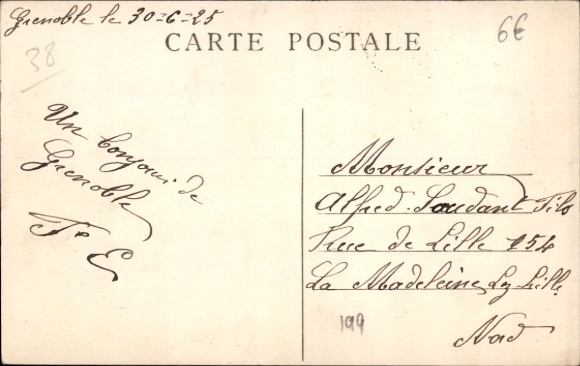 Grenoble le 30=6=25
6€
CARTE POSTALE
38
Un bonjour de
Grenoble
F. E
Monsieur
Alfred Soudant Fils
Rue de Lille 154
La Madeleine Lz-Lille
199
Nord